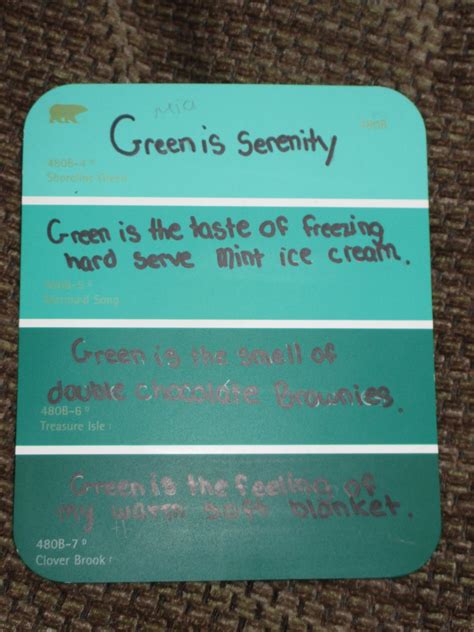 Mia
480B
Green is Serenity
480B-4 D
Shoreline Green
Green is the taste of freezing
hard serve Mint ice cream.
480B-5 D
Mermaid Song
Green is the smell of
double chocolate Brownies.
480B-6 D
Treasure Isle
Green is the feeling of
my warm soft blanket.
480B-7 D
Clover Brook